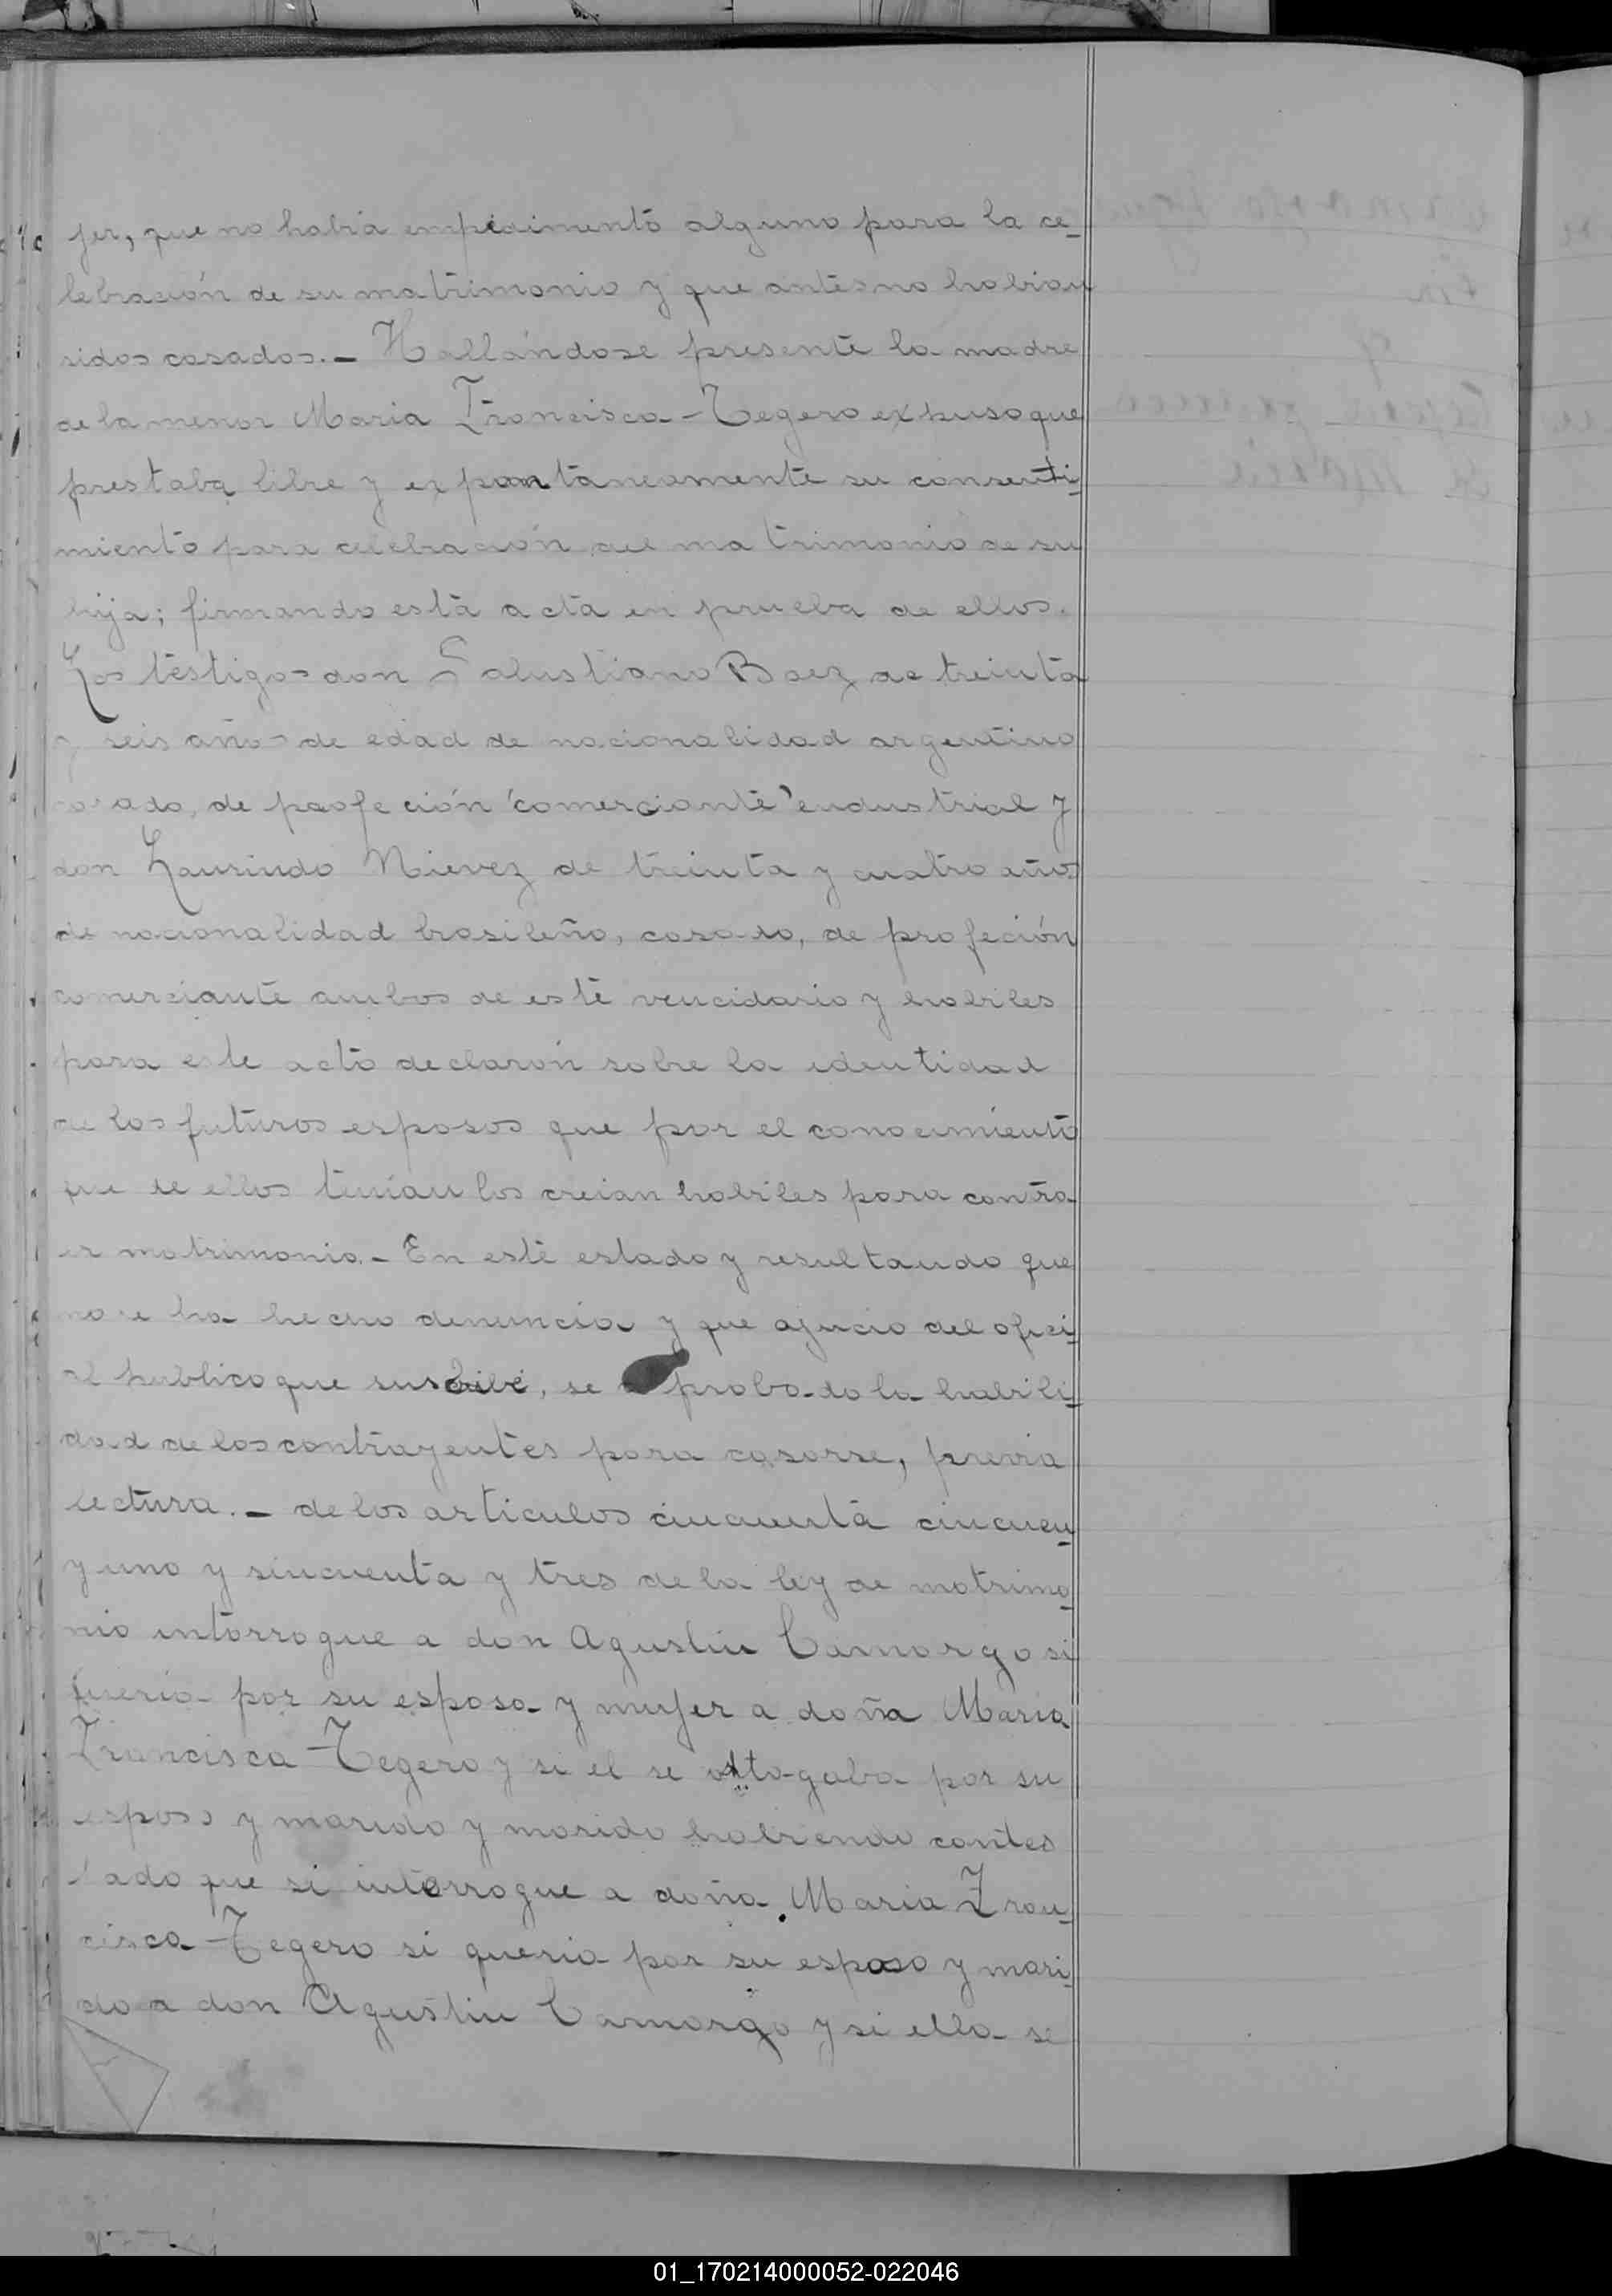 jer, que no habia empedimento alguno para la ce-
lebración de su matrimonio y que antes no habian
sidos casados. - Hallándose presente la madre
de la menor Maria Francisca Tegero expuso que
prestaba libre y expontaneamente su consenti-
miento para celebración del matrimonio de su
hija; firmando esta acta en prueba de ellos.
Los testigos don Salustiano Baez de treinta
y seis años de edad de nacionalidad argentino
casado, de profeción comerciante endustrial y
don Laurindo Nievez de treinta y cuatro años
de nacionalidad brasileño, casado, de profeción
comerciante ambos de este vencidario y habiles
para este acto declarón sobre la identidad
de los futuros esposos que por el conocimiento
que de ellos tenian los creian habiles para contra-
er matrimonio. - En este estado y resultando que
no se ha hecho denuncia y que ajucio del ofici-
al publico que suscribe, se a probado la habili-
dad de los contrayentes para casarse, previa
lectura. - de los articulos cincuenta cincuen-
y uno y sincuenta y tres de la ley de matrimo-
nio intorrogue a don Agustin Camorgo si
queria por su esposa y mujer a doña Maria
Francisca Tegero y si el se ottogaba por su
esposo y marido y marido habiendo contes
tado que si interrogue a doña Maria Fran-
cisca Tegero si queria por su esposo y mari-
do a don Agustin Camorgo y si ella se
01_170214000052-022046